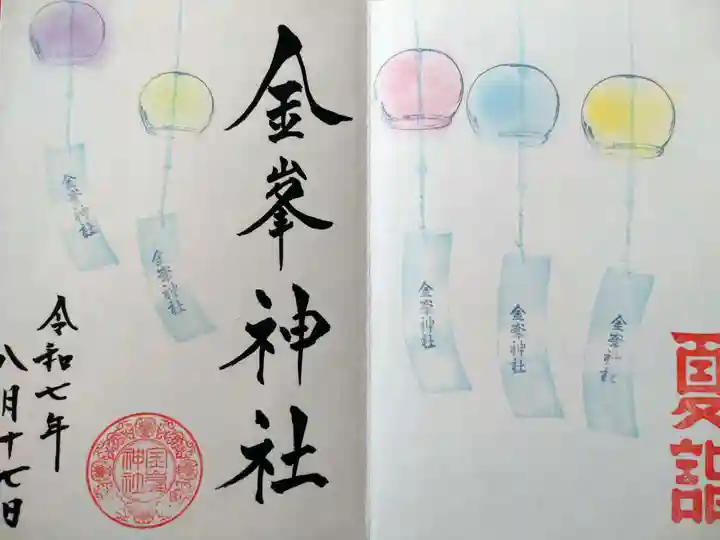 夏詣
金峯神社
金峯神社
金峯神社
金峯神社
金峯神社
金峯神社
金峯神社
令和七年
八月十七日